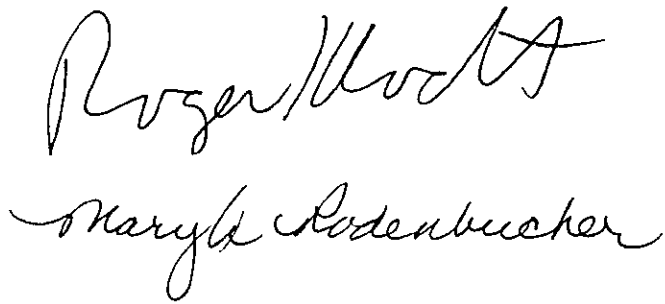 Roger Klodt
Mary K Rodenbucher